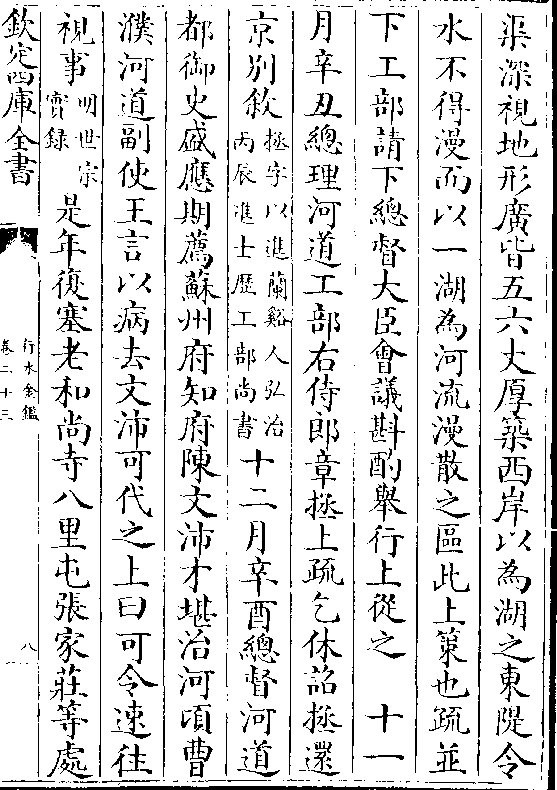 渠深視地形廣皆五六丈厚築西岸以為湖之東隄令
水不得漫而以一湖為河流漫散之區此上策也疏並
下工部請下總督大臣會議斟酌舉行上從之　十一
月辛丑總理河道工部右侍郎章拯上疏乞休詔拯還
京别敘拯字以進蘭谿人弘治丙辰進士歷工部尚書十二月辛酉總督河道
都御史盛應期薦蘇州府知府陳文沛才堪治河頃曹
濮河道副使王言以病去文沛可代之上曰可令速往
視事明世宗實録是年復塞老和尚寺八里屯張家莊等處
欽定四庫全書
行水金鑑
卷二十三
八